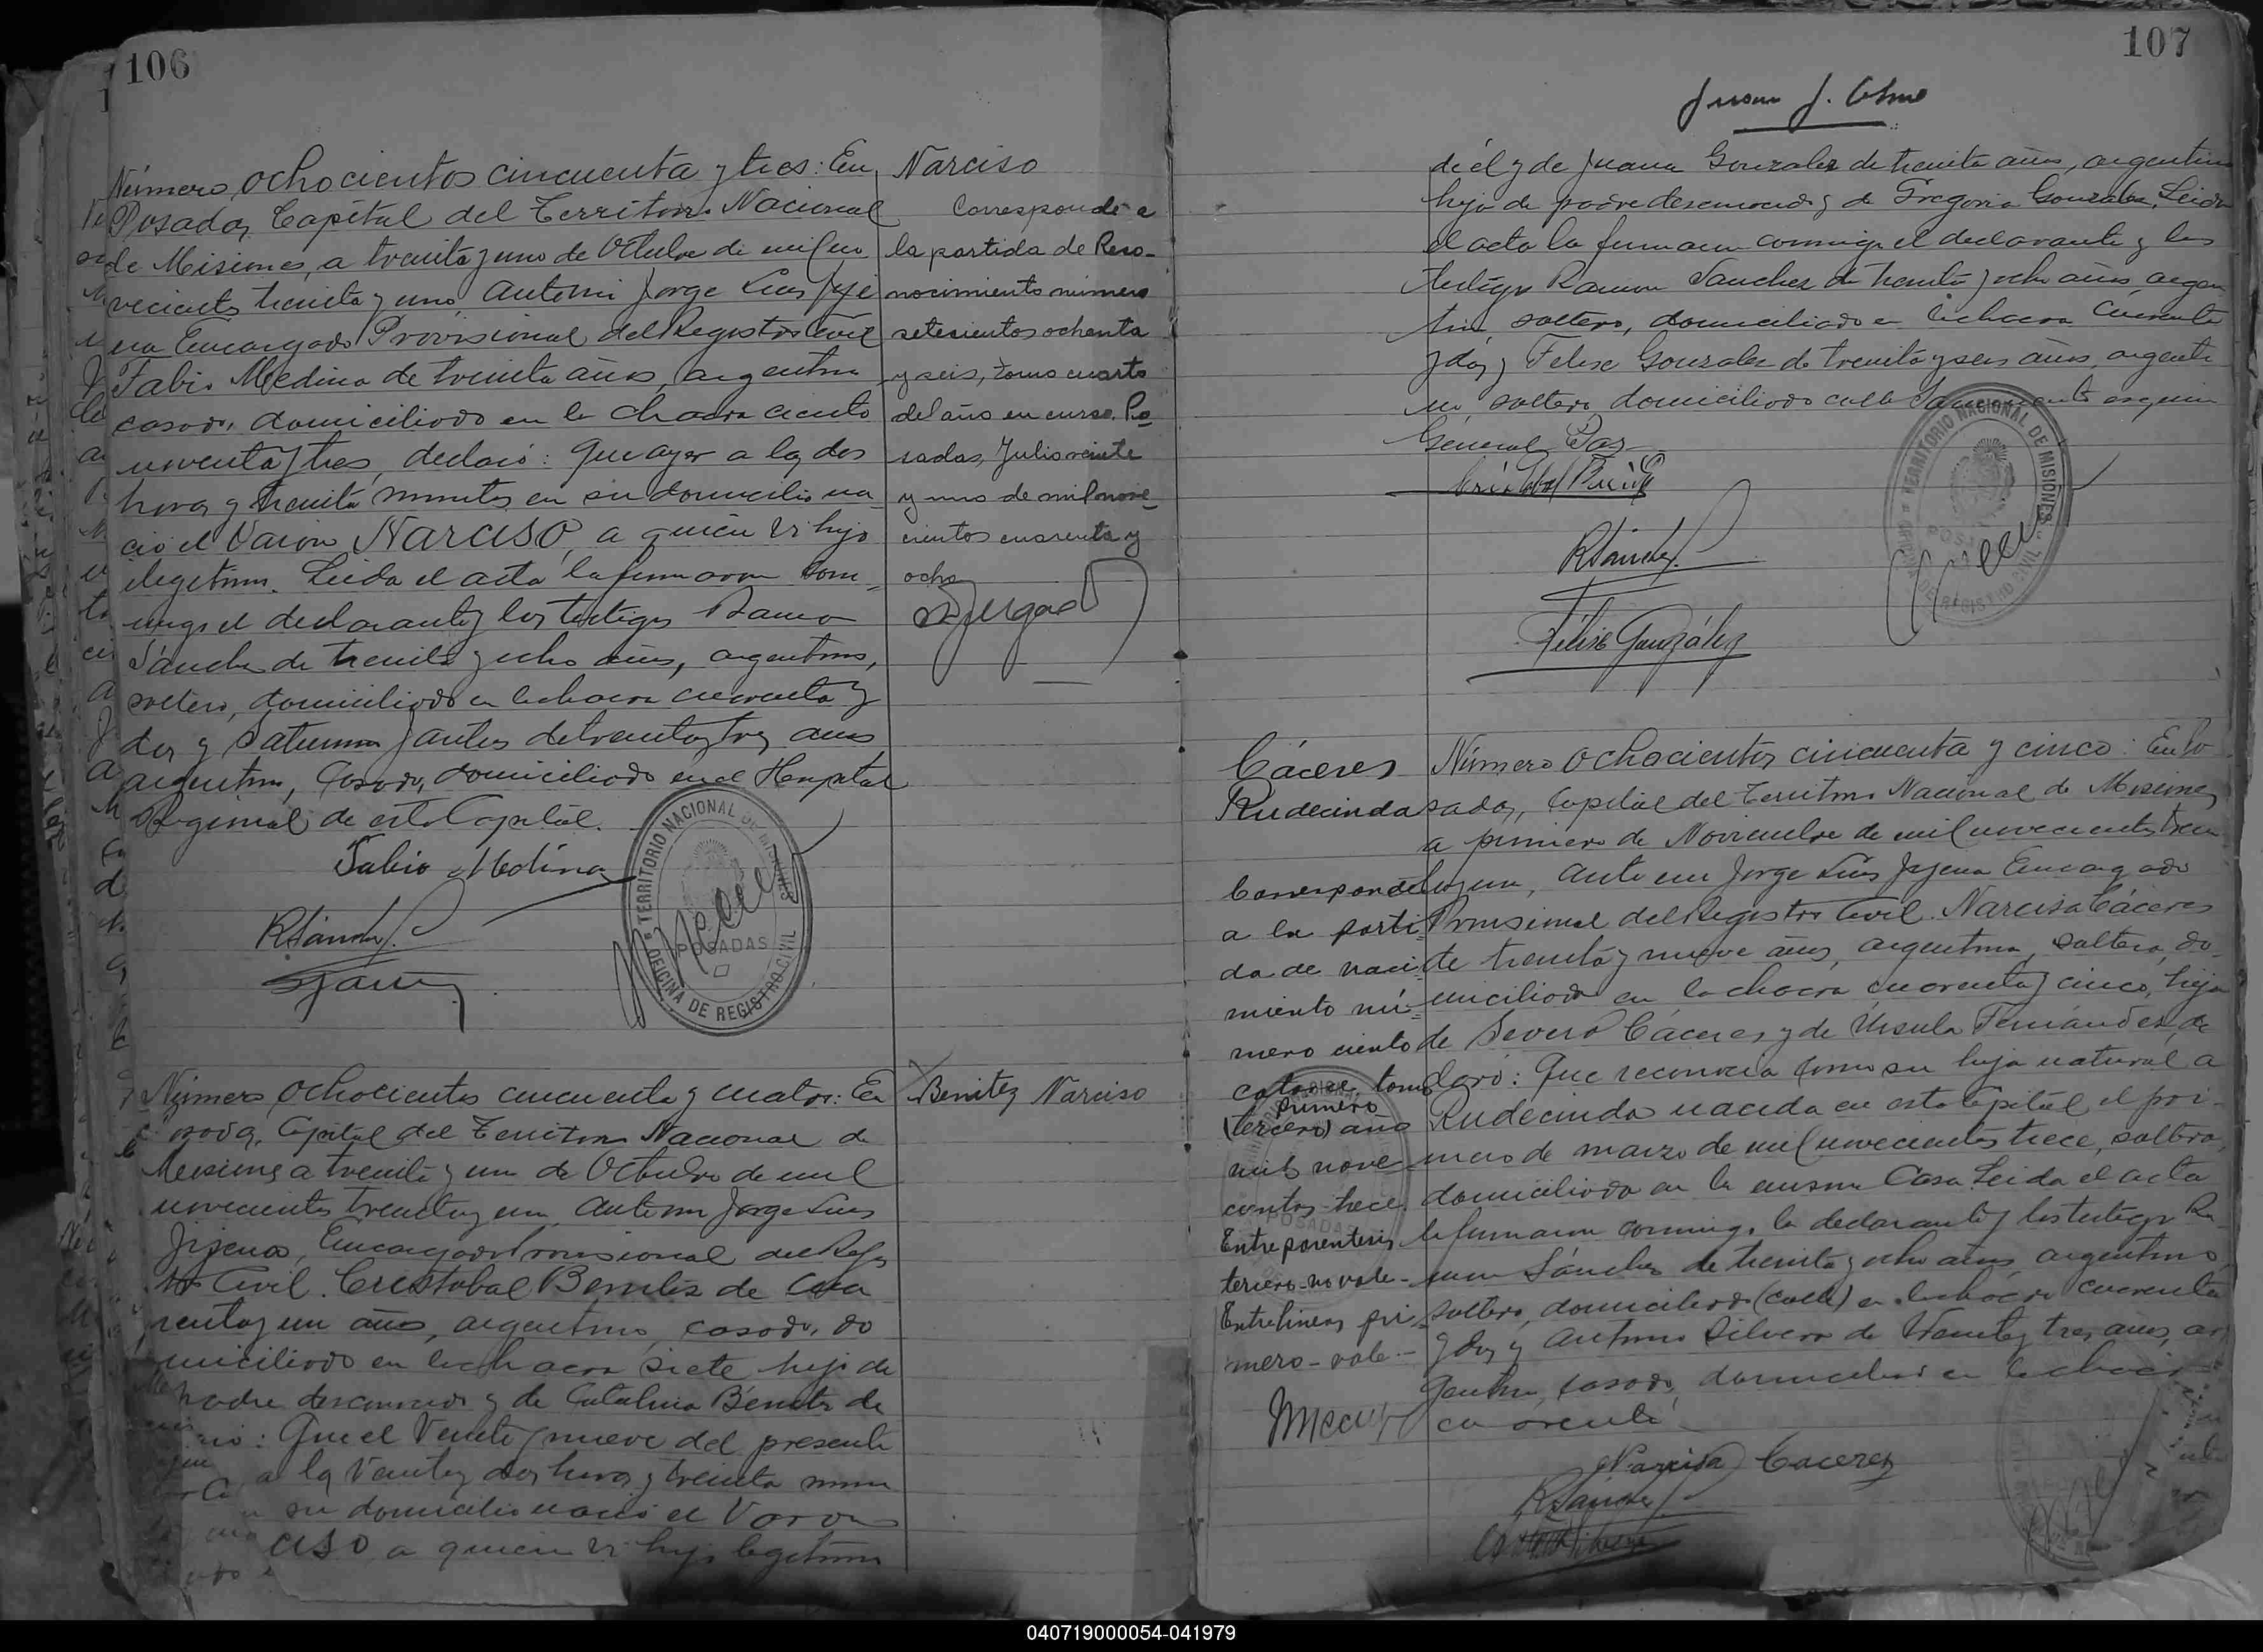 106
Número ochocientos cincuenta y tres: En
Posadas, Capital del Territorio Nacional
de Misiones, a treinta y uno de Octubre de mil no
vecientos treinta y uno, ante mi Jorge Luis Jije
na Encargado Provisional del Registro Civil
Fabio Medina de treinta años, argentino
casado, domiciliado en la chacra ciento
noventa y tres, declaró: Que ayer a las dos
horas y treinta minutos en su domicilio na
ció el Varon NARCISO, a quien vi hijo
ilegitimo. Leida el acta la firmaron con
migo el declarante y los testigos Ramon
Sánchez de treinta y ocho años, argentino,
soltero, domiciliado en la chacra cuarenta y
dos y Saturnino de treinta y tres años
argentino, casado, domiciliado en el Hospital
Regional de esta Capital.
Fabio Medina
RSánchez
Narciso
Corresponde a
la partida de Reco-
nocimiento número
setecientos ochenta
y seis, tomo cuarto
del año en curso. Po-
sadas, Julio veinte
y uno de mil nove-
cientos cuarenta y
ocho
TERRITORIO NACIONAL DE MISIONES
POSADAS
OFICINA DE REGISTRO CIVIL
Número ochocientos cincuenta y cuatro: En
Posadas, Capital del Territorio Nacional de
Misiones a treinta y uno de Octubre de mil
novecientos treinta y uno, ante mi Jorge Luis
Jijena, Encargado Provisional del Regis
tro Civil. Cristobal Benitez de cua
renta y un años, argentino, casado, do
miciliado en la chacra siete hijo de
padre desconocido y de Catalina Benitez de
: Que el Veinte y nueve del presente
a las Veinte y dos horas y treinta minu
su domicilio nació el Varon
CISO a quien vi hijo legitimo
Benitez Narciso
107
Juan J.
de él y de Juana Gonzalez de treinta años, argentina
hija de padre desconocido y de Gregoria Gonzalez. Leida
el acta la firmaron conmigo el declarante y los
testigos Ramon Sanchez de treinta y ocho años, argen
tino, soltero, domiciliado en la chacra cuarenta
y dos y Felise Gonzalez de treinta y seis años, argenti
no, soltero, domiciliado calle Sarmiento esquina
General Paz
RSánchez
Félise González
TERRITORIO NACIONAL DE MISIONES
OFICINA DE REGISTRO CIVIL
Cáceres
Rudecinda
Corresponde
a la parti-
da de naci-
miento nú-
mero ciento
catorce tomo
primero
(tercero) año
mil nove
cientos trece.
Entre parentesis
tercero-no vale-
Entrelineas pri-
mero-vale-
Número ochocientos cincuenta y cinco: En Po
sadas, Capital del Territorio Nacional de Misiones
a primero de Noviembre de mil novecientos trein
ta y uno, ante mi Jorge Luis Jijena Encargado
Provisional del Registro Civil. Narcisa Cáceres
de treinta y nueve años, argentina, soltera, do
miciliada en la chacra cuarenta y cinco, hija
de Severo Cáceres y de Ursula Fernández, de
claró: Que reconocia como su hija natural a
Rudecinda nacida en esta Capital el pri-
mero de marzo de mil novecientos trece, soltera,
domiciliada en la misma Casa. Leida el acta
la firmaron conmigo la declarante y los testigos Ra
mon Sánchez de treinta y ocho años, argentino,
soltero, domiciliado (calle) en la chacra cuarenta
y dos y Antonio Silvero de treinta y tres años, ar
gentino, casado, domiciliado en la chacra
cuarenta
Narcisa Caceres
RSánchez
040719000054-041979